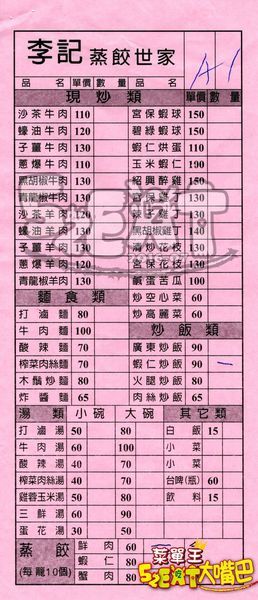 李記 蒸餃世家
A1
品名 單價 數量 品名 單價 數量
現炒類 單價 數量
沙茶牛肉 110 宮保蝦球 150
蠔油牛肉 120 碧綠蝦球 150
子薑牛肉 130 蝦仁烘蛋 110
蔥爆牛肉 110 玉米蝦仁 190
黑胡椒牛肉 130 紹興醉雞 150
青龍椒牛肉 130
沙茶羊肉 120 辣子雞丁 130
蠔油羊肉 120 黑胡椒雞丁 140
子薑羊肉 130 清炒花枝 130
蔥爆羊肉 120 宮保花枝 130
青龍椒羊肉 130 鹹蛋苦瓜 100
麵食類 炒空心菜 60
打滷麵 80 炒高麗菜 60
牛肉麵 100 炒飯類
酸辣麵 80 廣東炒飯 90
榨菜肉絲麵 80 蝦仁炒飯 90
木鬚炒麵 80 火腿炒飯 80
炸醬麵 65 肉絲炒飯 65
湯類 小碗 大碗 其它類
打滷湯 50 80 白飯 15
牛肉湯 60 100 小菜
酸辣湯 40 70 小菜
榨菜肉絲湯 40 70 台啤(瓶) 60
雞蓉玉米湯 50 80 飲料 15
三鮮湯 60 90
蛋花湯 30 50
蒸餃 鮮肉 60
(每籠10個) 蝦仁 80
蟹肉 80
菜單王
5.EAT大嘴巴